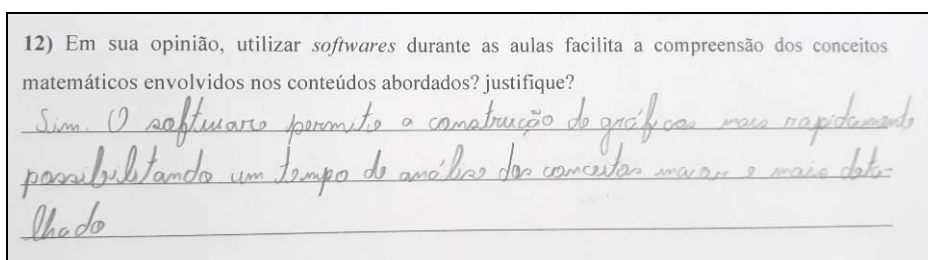 12) Em sua opinião, utilizar softwares durante as aulas facilita a compreensão dos conceitos
matemáticos envolvidos nos conteúdos abordados? justifique?
Sim. O software permite a construção de gráficos mais rapidamente
possibilitando um tempo de análise dos conceitos maior e mais deta-
lhado